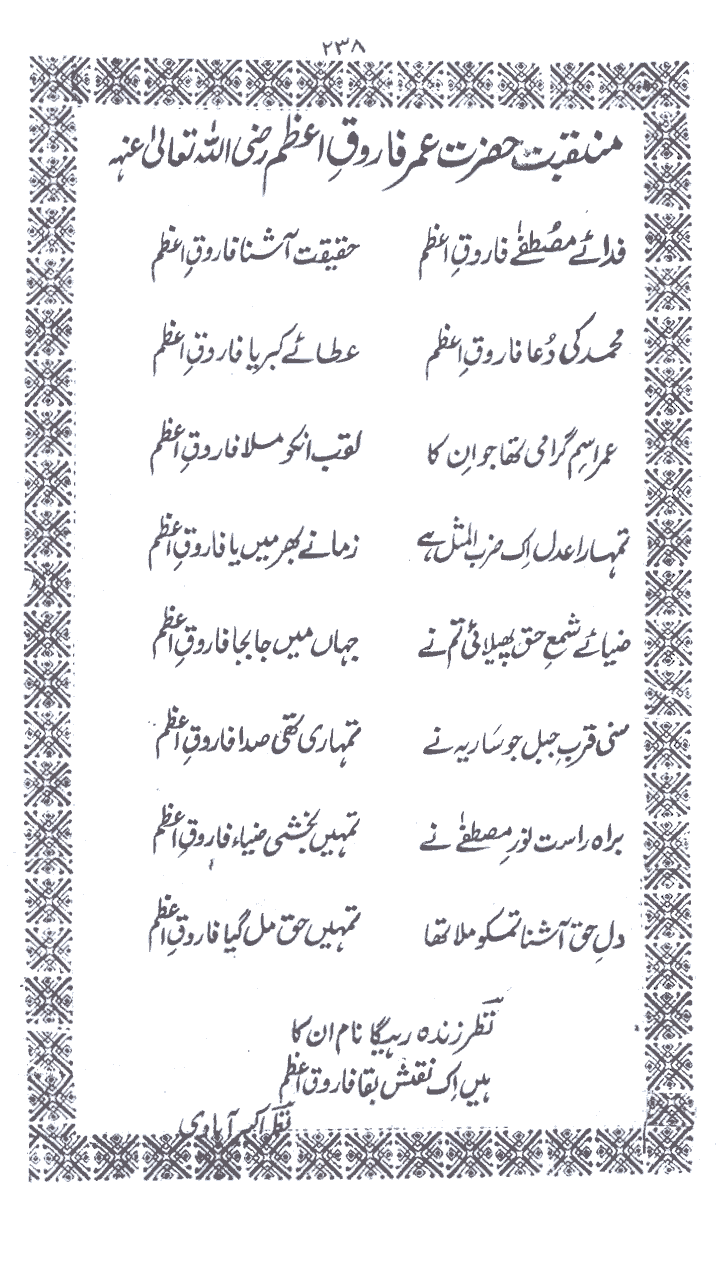 ۲۳۸
منقبت حضرت عمر فاروقِ اعظم رضی اللہ تعالیٰ عنہ
فدائے مصُطفےٰ فاروقِ اعظم حقیقت آشنا فاروقِ اعظم
محمد کی دُعا فاروقِ اعظم عطائے کبریا فاروقِ اعظم
عمر اسمِ گرامی تھا جو اِن کا لقب انکو ملا فاروقِ اعظم
تمہارا عدل اِک ضرب المثل ہے زمانے بھر میں یا فاروقِ اعظم
ضیائے شمعِ حق پھیلائی تم نے جہاں میں جا بجا فاروقِ اعظم
سنی قربِ جبل جو سَاریہ نے تمہاری تھی صدا فاروقِ اعظم
براہ راست نورِ مصطفےٰ نے تمہیں بخشی ضیاء فاروقِ اعظم
دلِ حق آشنا تمکو ملا تھا تمہیں حق مل گیا فاروقِ اعظم
نظر زندہ رہیگا نام ان کا
ہیں اِک نقش بقا فاروق اعظم
نظر اکبر آبادی